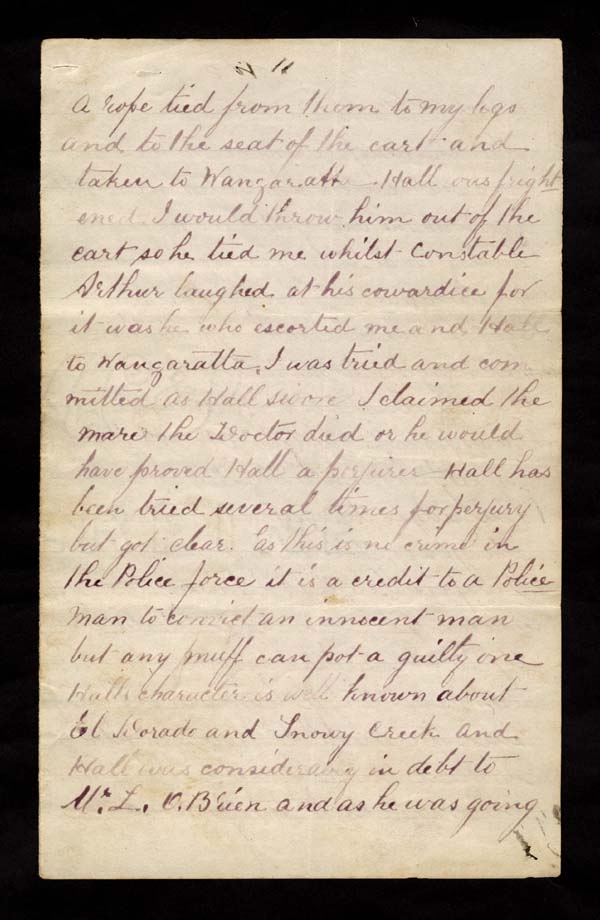 11
a rope tied from them to my legs
and to the seat of the cart and
taken to Wangaratta Hall was fright
ened I would throw him out of the
cart so he tied me whilst Constable
Arthur laughed at his cowardice for
it was he who escorted me and Hall
to Wangaratta, I was tried and com
mitted as Hall swore I claimed the
mare the Doctor died or he would
have proved Hall a perjurer Hall has
been tried several times for perjury
but got clear. as this is no crime in
the Police force it is a credit to a Police
man to convict an innocent man
but any muff can pot a guilty one
Halls character is well known about
El Dorado and Snowy Creek and
Hall was considerably in debt to
Mr L. O.Brien and as he was going